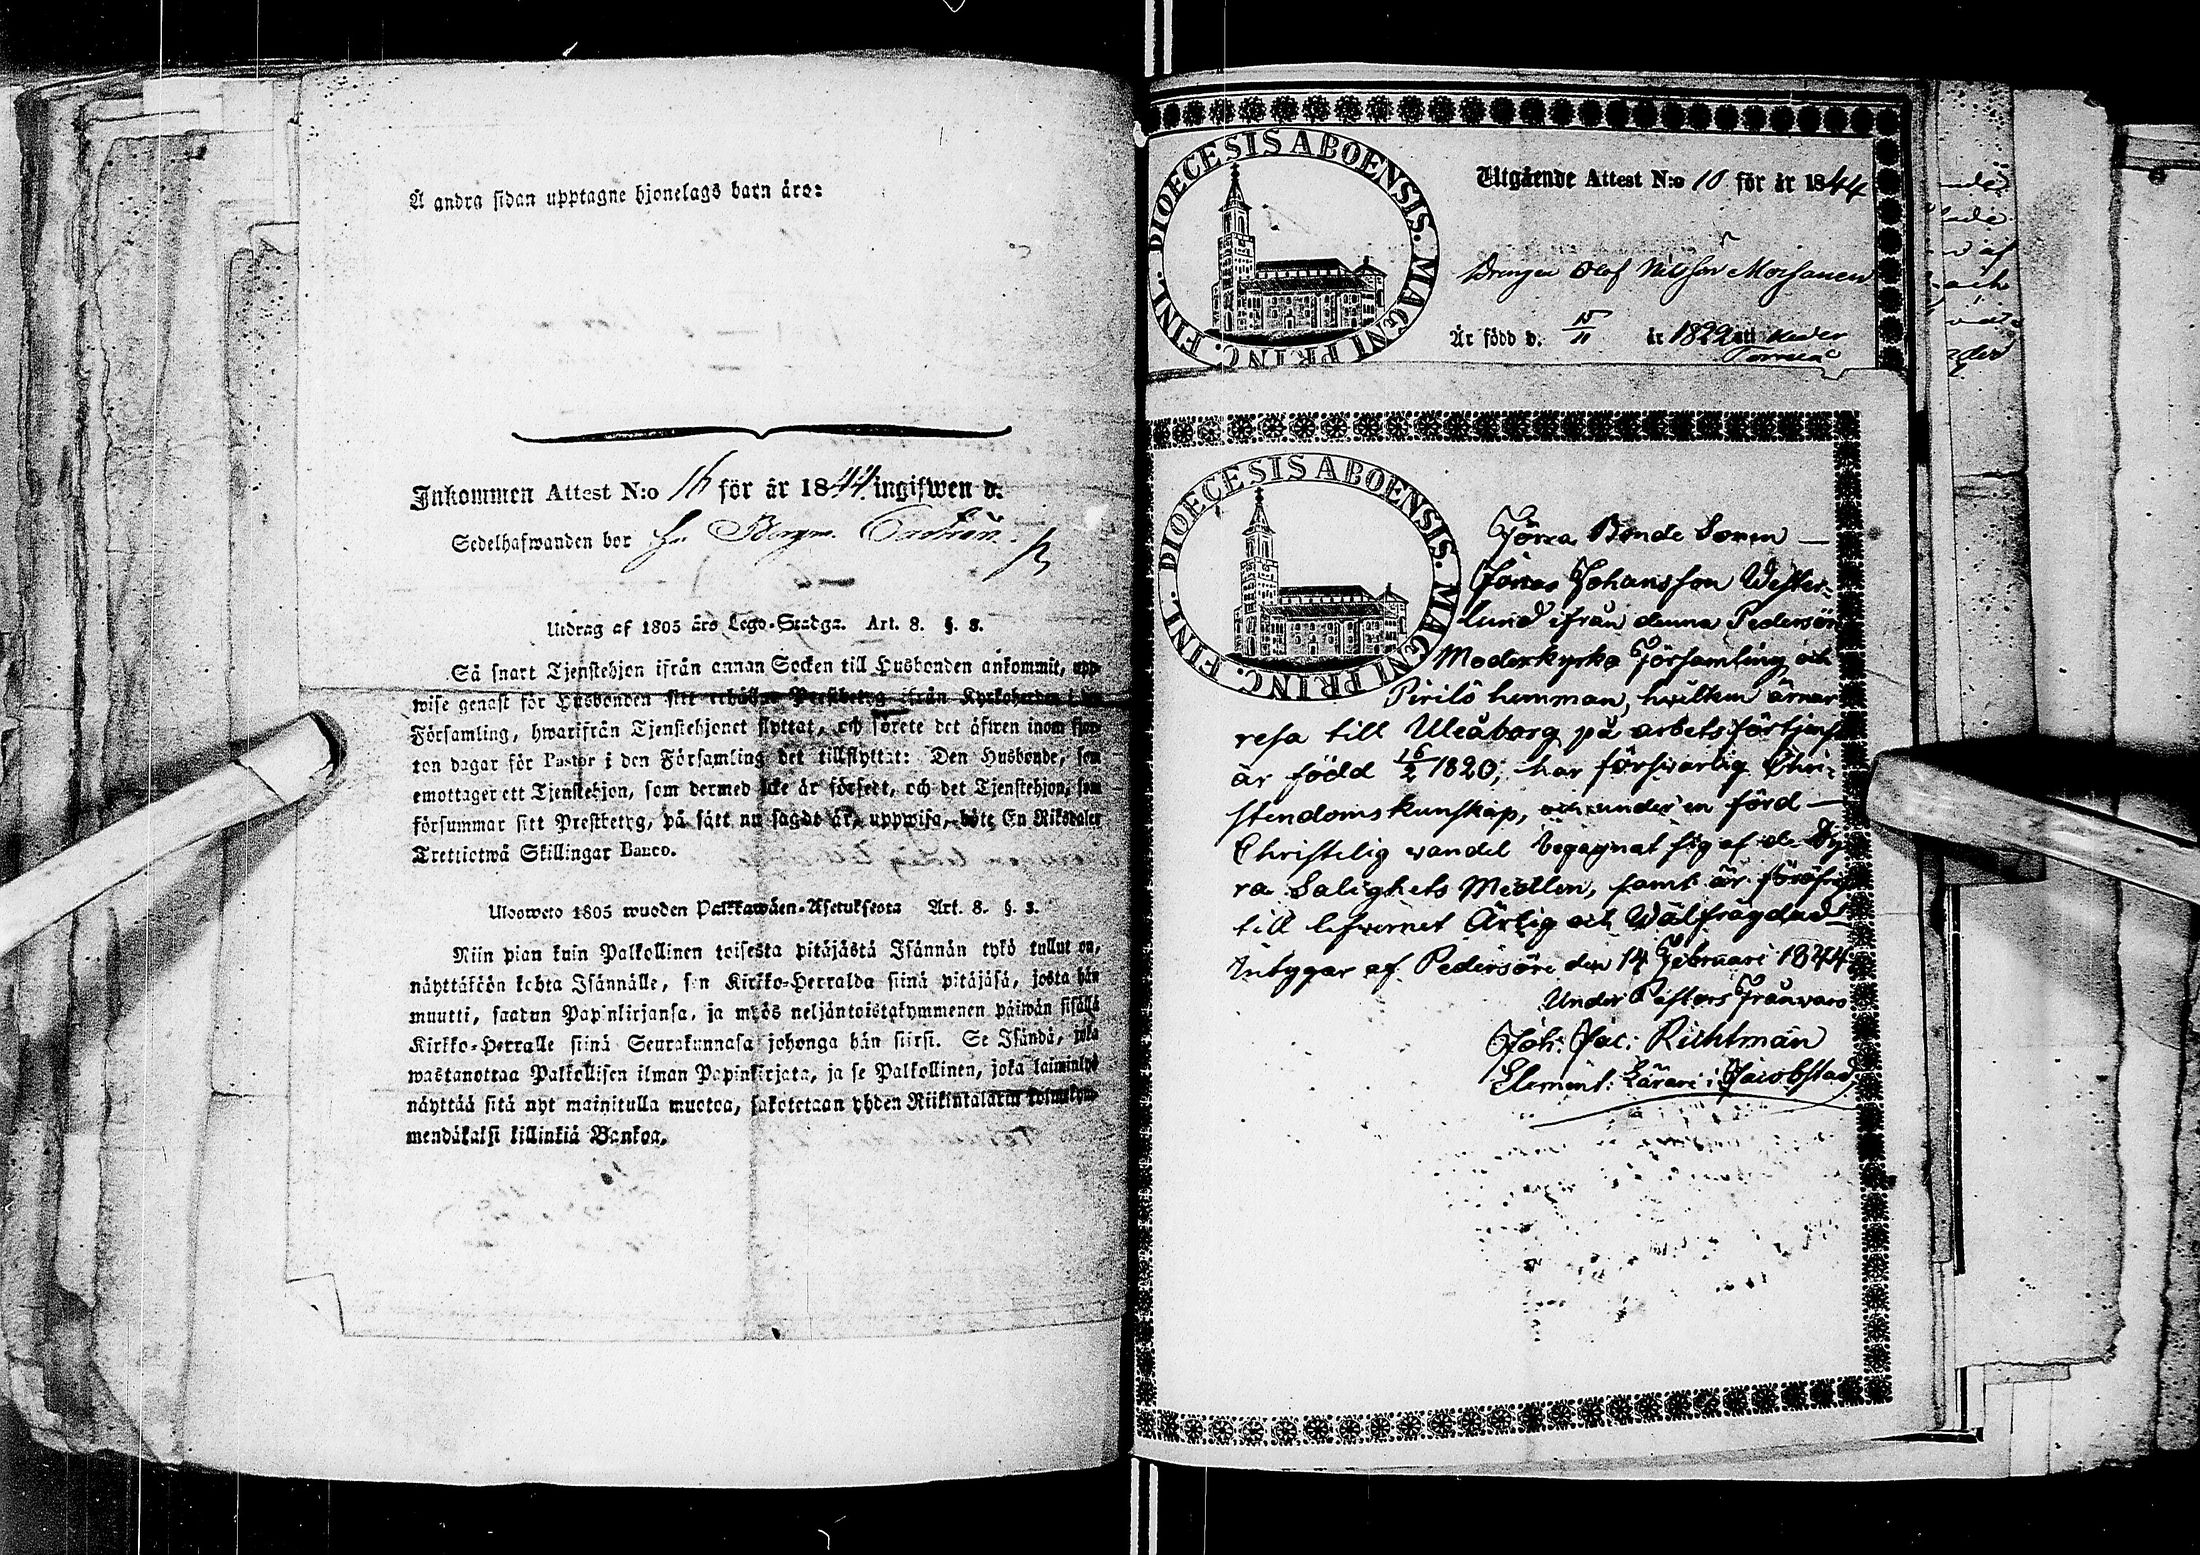 Å andra sidan upptagne hjonelags barn äro:
Inkommen Attest N:o 16 för år 1844 ingifwen d.
Sedelhafwanden bor
Utdrag af 1805 års Lego-Stadga. Art. 8. §. 3.
Så snart Tjenstehjon ifrån annan Socken till Husbonden ankommit, upp-
wise genast för Husbonden sitt erhållne Prestbetyg ifrån Kyrkoherden i den
Församling, hwarifrån Tjenstehjonet flyttat, och förete det äfwen inom fjor-
ton dagar för Pastor i den Församling det tillflyttat: Den Husbonde, som
emottager ett Tjenstehjon, som dermed icke är försedt, och det Tjenstehjon, som
försummar sitt Prestbetyg, på sätt nu sagdt är, uppwisa, böte En Riksdaler
Trettiotwå Skillingar Banco.
Uloswero 1805 wuoden Palkkawäen-Asetuksesta Art. 8. §. 3.
Niin pian kuin Palkollinen toisesta pitäjästä Isännän tykö tullut on,
näyttäköön kohta Isännälle, sen Kirkko-Herralda siinä pitäjäsä, josta hän
muutti, saadun Papinkirjansa, ja myös neljäntoistakymmenen päiwän sisällä
Kirkko-Herralle siinä Seurakunnasa johonga hän siirsi. Se Isändä, joka
wastanottaa Palkollisen ilman Papinkirjata, ja se Palkollinen, joka laiminlyö
näyttää sitä nyt mainitulla muotoa, sakotetaan yhden Riikintalarin kolmekym-
mendäkaksi killinkiä Bankoa.
DIOECESIS ABOENSIS. MAGNI PRINC. FINL.
Utgående Attest N:o 10 för år 1844
Drengen Olof Nilsson
Är född d. 15/11 år 1822 uti Neder
Torneå
DIOECESIS ABOENSIS. MAGNI PRINC. FINL.
Förra Bonde Sonen —
Jonas Johansson Wester-
lund ifrån denna Pedersöre
Moderkyrko Församling och
Pirilö hemman, hvilken ärnar
resa till Uleåborg på arbetsförtjenst
är född 16/2 1820, har försvarlig Chri-
stendomskunskap, och under en förd —
Christelig vandel begagnat sig af de Dy-
ra Salighets Medlen, samt är föröfrigt
till lefvernet Ärlig och Wälfrägdad —
Intygar af Pedersöre den 14 Februari 1844
Under Pastors Frånvaro
Joh: Jac: Richtman
Element: Lärare i Jacobstad